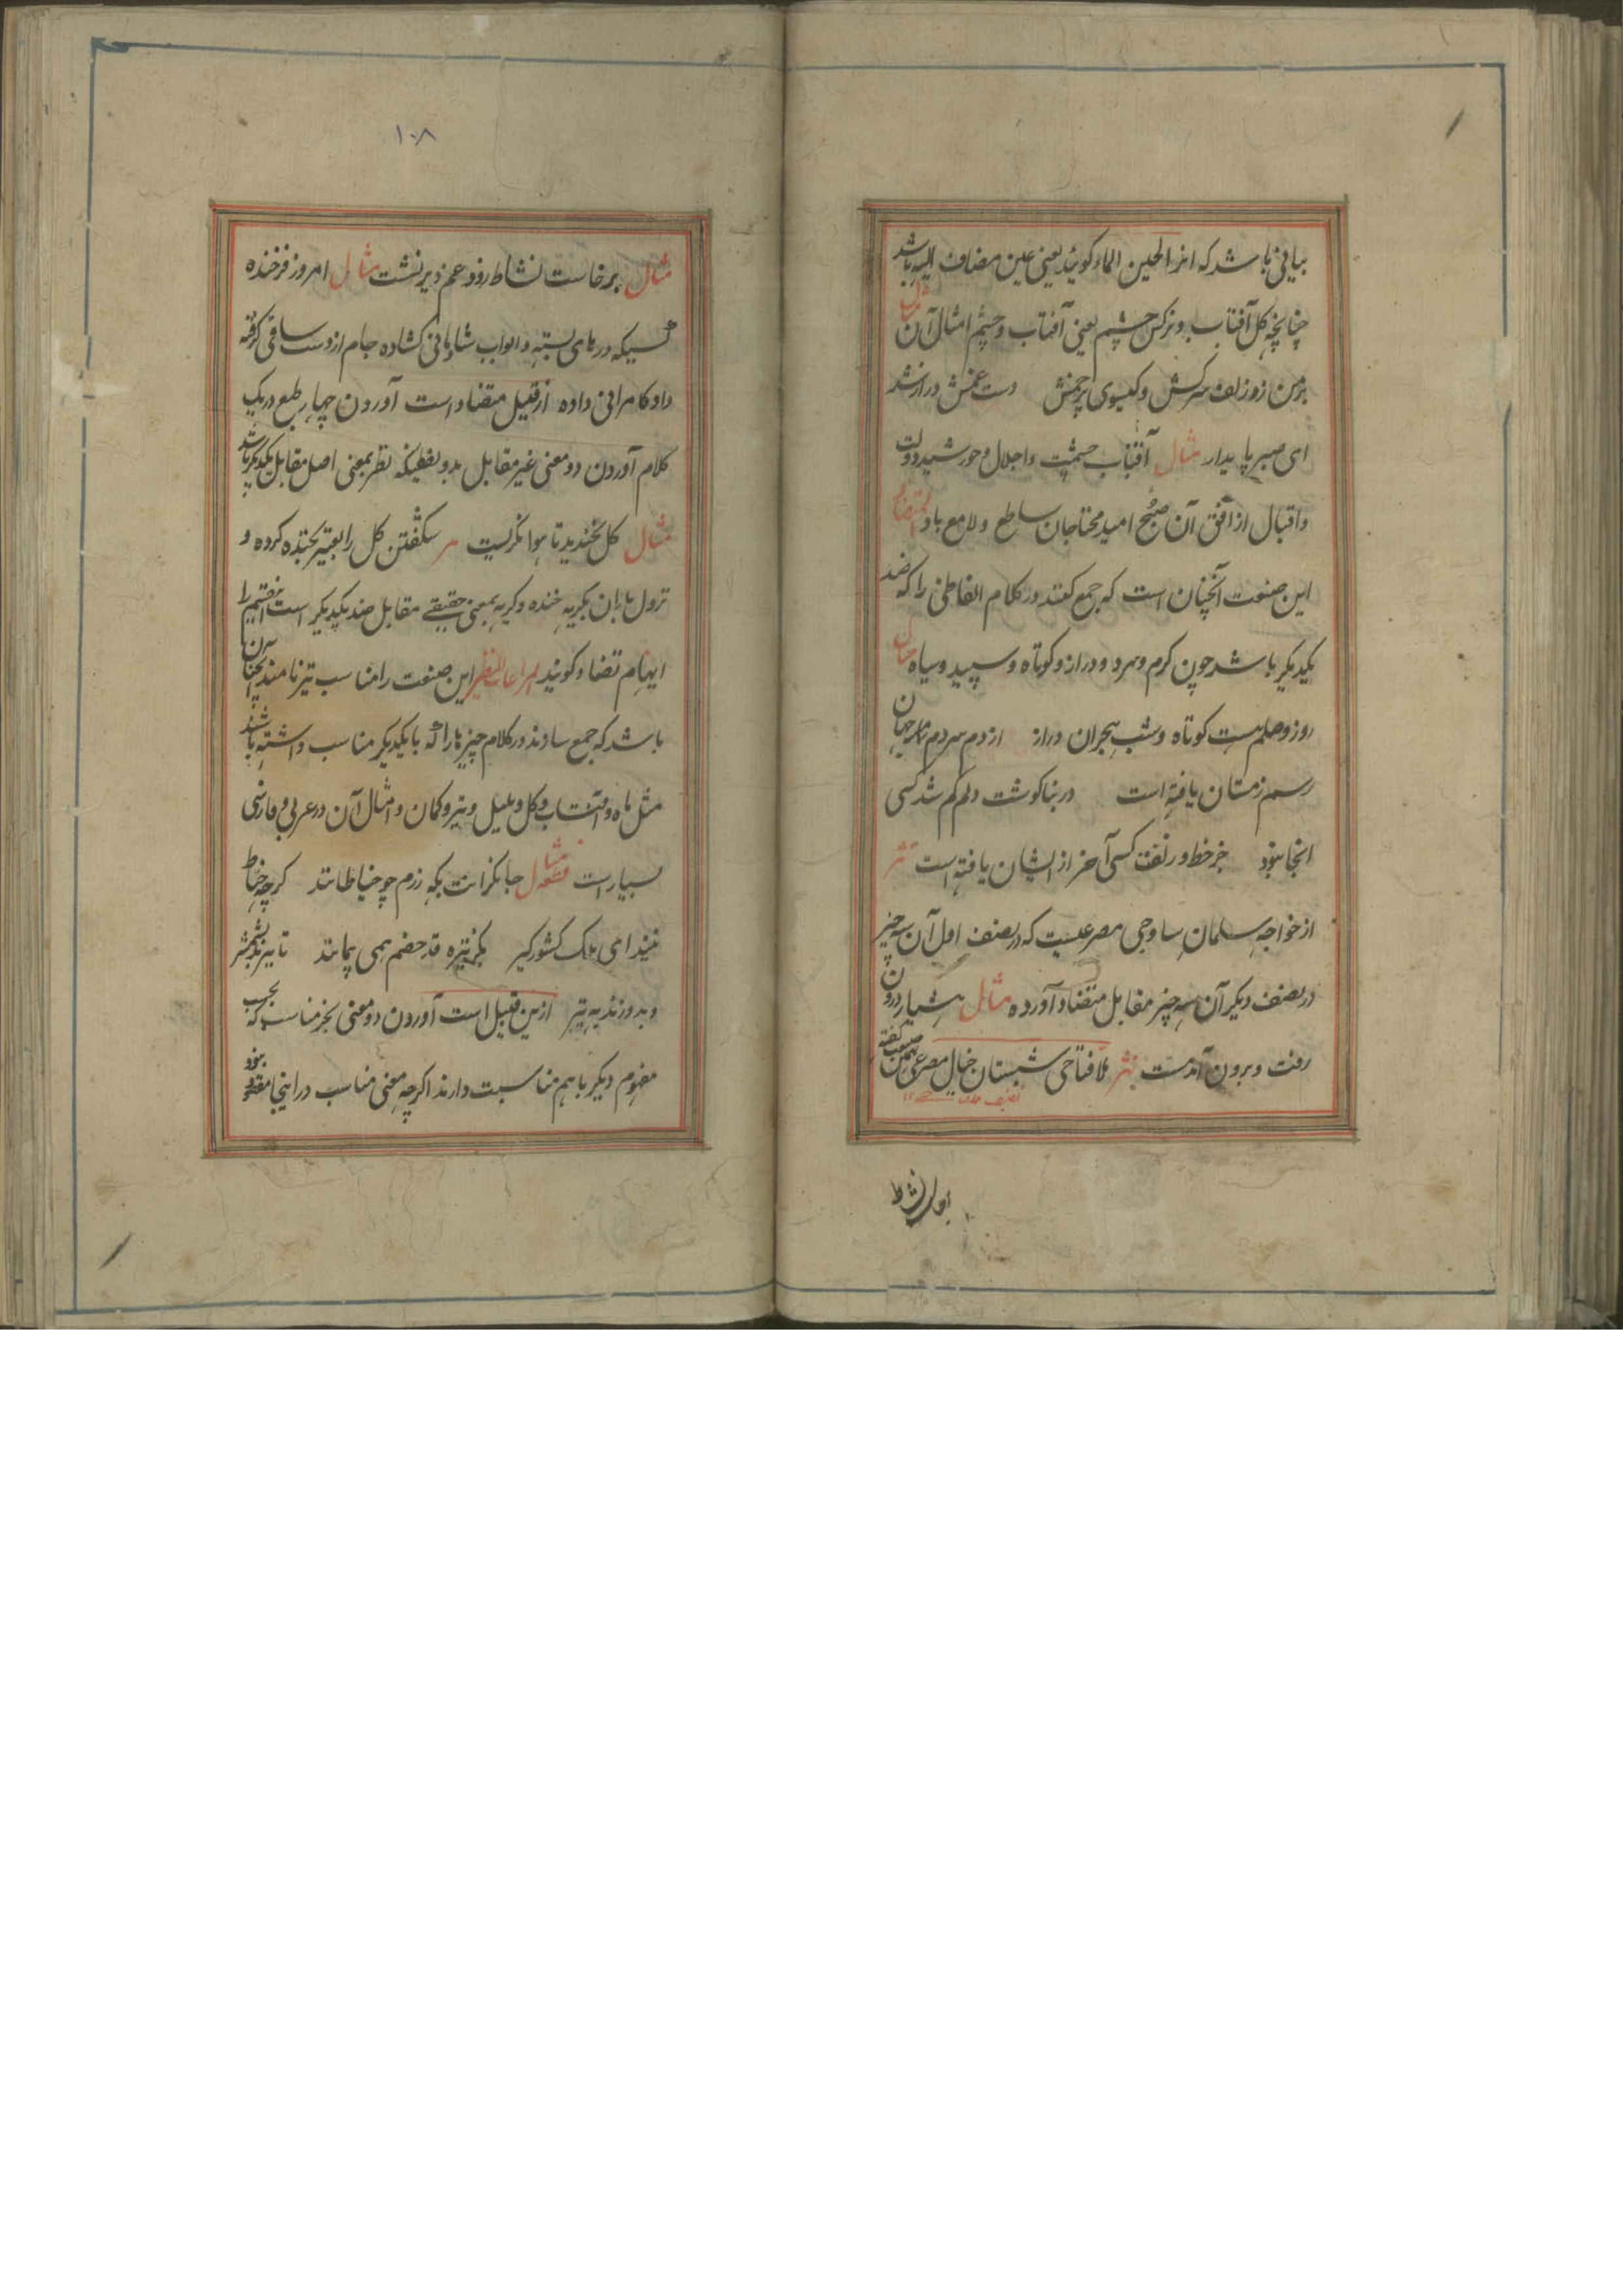 بیانی باشد که انرا لجین الماء گویند یعنی عین مضاف الیه باشد
چنانچه گل آفتاب و نرگس چشم یعنی آفتاب و چشم امثال آن مثال
بر من زور زلف سرکش و گیسوی پرخمش دست غمش دراز شد
ای صبر پایدار مثال آفتاب حشمت و اجلال و خورشید دولت
و اقبال از افق آن صبح امید محتاجان ساطع و لامع باد المتضاد
این صنعت آنچنان است که جمع کنند در کلام الفاظی را که ضد
یکدیگر باشد چون گرم و سرد و دراز و کوتاه و سپید و سیاه مثال
روز وصلم هست کوتاه و شب هجران دراز از دم سردم مگر جهان
رسم زمستان یافته است در بناگوشت دلم گم شد کسی
انجا نبود جز خط و زلفت کسی آخر از ایشان یافته است نثر
از خواجه سلمان ساوجی مصرعیست که در نصف اول آن سه چیز
در نصف دیگر آن سه چیز مقابل متضاد آورده مثال هشیار درون
رفت و برون آمد مست نثر ملا فتاحی شبستان خیال مصرعی بهمین صنعت گفته
۱۰۸
مثال برخاست نشاط زود و غم دیر نشست مثال امروز فرخنده
کسیکه درهای بسته و ابواب شادمانی گشاده جام از دست ساقی گرفته
داد کامرانی داده از قبیل متضاد است آوردن چهار طبع در یک
کلام آوردن دو معنی غیر مقابل بدو لفظیکه نظر بمعنی اصل مقابل یکدیگر باشد
مثال گل نخندید تا هوا نگریست شگفتن گل را تعبیر بخنده کرده و
نزول باران بگریه خنده و گریه بمعنی حقیقی مقابل ضد یکدیگر است این قسم را
ایهام تضاد گویند المراعات النظیر این صنعت را مناسب نیز نامند آنچنان
باشد که جمع سازند در کلام چیزها را که با یکدیگر مناسب داشته باشند
مثل ماه و آفتاب و گل و بلبل و تیر و کمان و امثال آن در عربی و فارسی
بسیار است قطعه مثال جانگرانت بگه رزم چو خیاطانند گرچه خیاط
نیند ای ملک کشور گیر بگز نیزه قد خصم همی پیمایند تا ببرند بشمشیر
و بدوزند به تیر ازین قبیل است آوردن دو معنی بجز مناسب که بحسب
مفهوم دیگر باهم مناسبت دارند اگرچه معنی مناسب در اینجا مقصود نبود